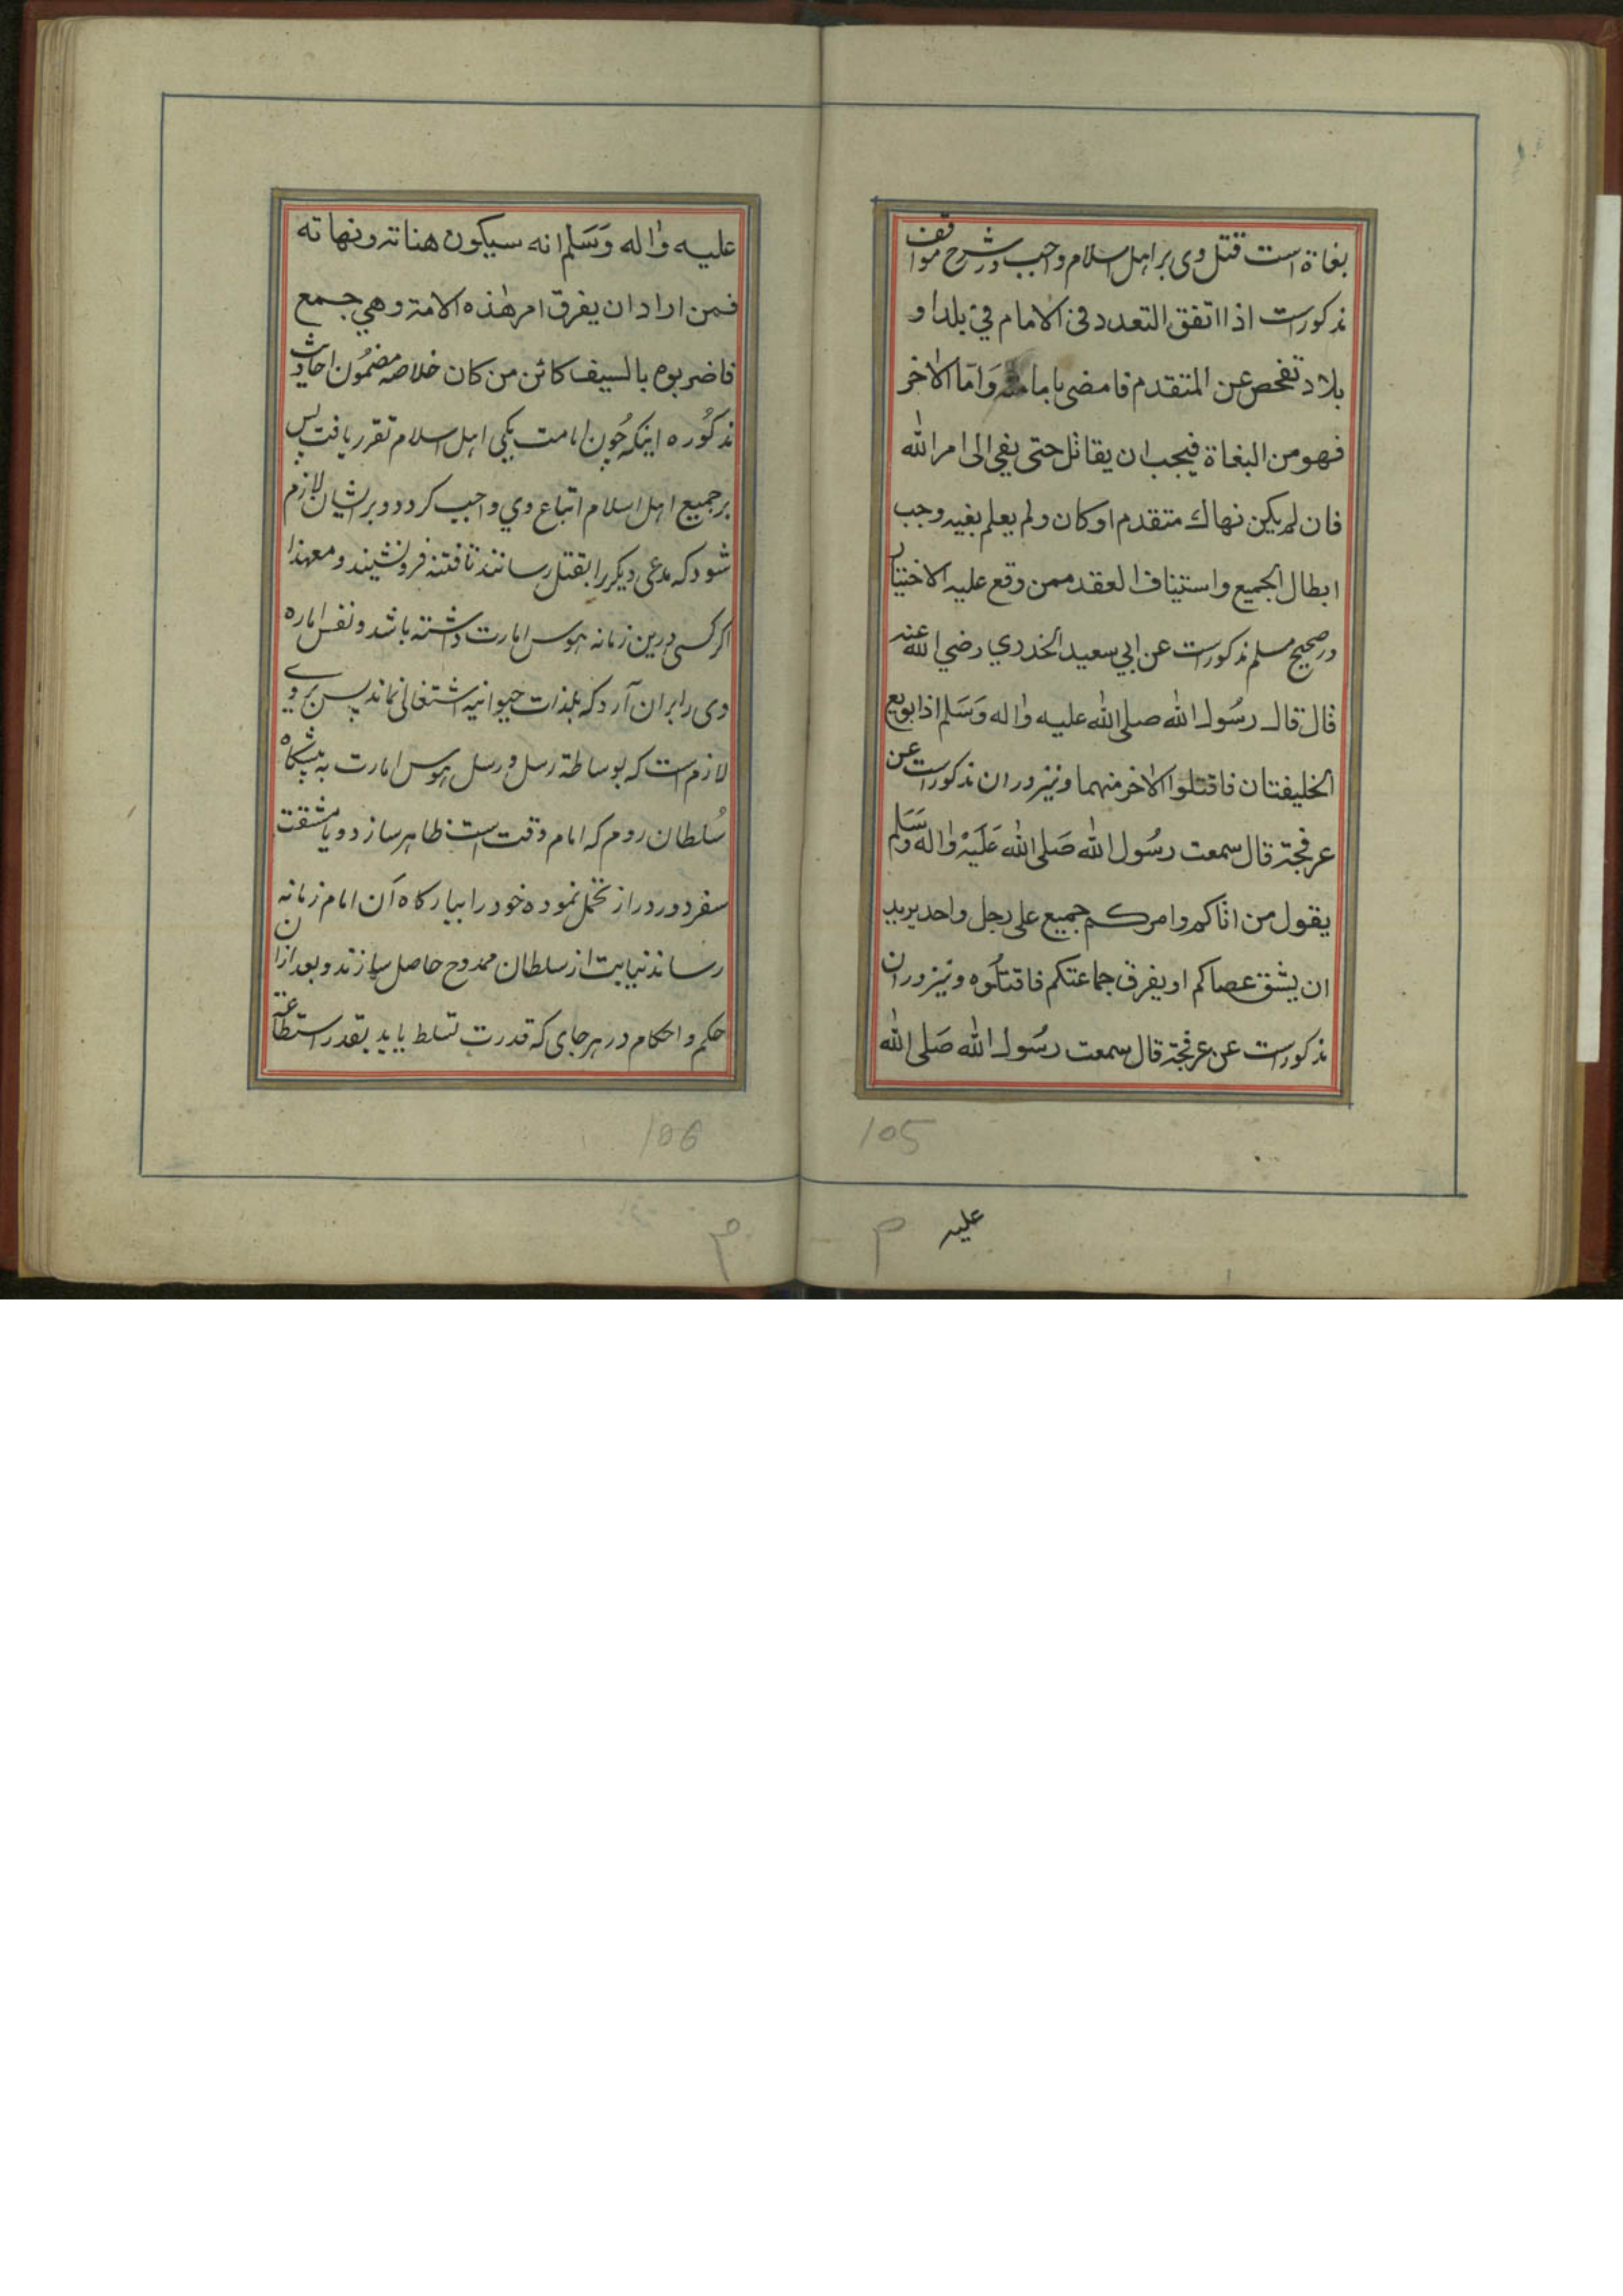 بغاة است قتل وی بر اهل اسلام واجب و در شرح مواقف
مذکورست اذا اتفق التعدد فی الامام فی بلد او
بلاد تفحص عن المتقدم فامضی بامامته وَامّا الاٰخر
فهو من البغاة فیجب ان یقاتل حتی یفی الی امر الله
فان لم یکین نهاك متقدم او کان ولم یعلم بغیه وجب
ابطال الجمیع واستیناف العقد ممن وقع علیه الاختیار
در صحیح مسلم مذکورست عن ابي سعید الخدري رضي الله عنه
قال قال رسُول الله صلی الله علیه واٰله وَسَلم اذا بویع
الخلیفتان فاقتلوا الاٰخر منهما و نیز دران مذکورست عن
عرفجة قال سمعت رسُول الله صَلی الله عَلَیْه واٰله وَسَلم
یقول من اتاکم وامرکم جمیع علی رجل واحد یرید
ان یشق عصاکم او یفرق جماعتکم فاقتلُوه و نیز دران
مذکورست عن عرفجة قال سمعت رسُول الله صَلی الله
105
علیه
م
علیه واٰله وَسَلم انه سیکون هناة ونهاته
فمن اراد ان یفرق امر هٰذه الامة وهي جمع
فاضربوه بالسیف کائن من کان خلاصه مضمُون احادیث
مذکُوره اینکه چُون امامت یکی اهل اسلام تقرر یافت پس
بر جمیع اهل اسلام اتباع وي واجب کردد و بر ایشان لازم
شود که مدعی دیکر را بقتل رسانند تا فتنه فرونشیند و معهذا
اکر کسی درین زمانه هوس امارت داشته باشد و نفس اماره
وی را بران آرد که بلذات حیوانیه اشتغالی نماند پس بر وے
لازم است که بوساطة رسل و رسل هوس امارت به پیشکاه
سُلطان روم که امام وقت است ظاهر سازد و یا مشقت
سفر دور دراز تحمل نموده خود را ببارکاه آن امام زمانه
رساند نیابت از سلطان ممدوح حاصل سازند و بعد ازان
حکم و احکام در هر جای که قدرت تسلط یابد بقدر استطاعة
106
م